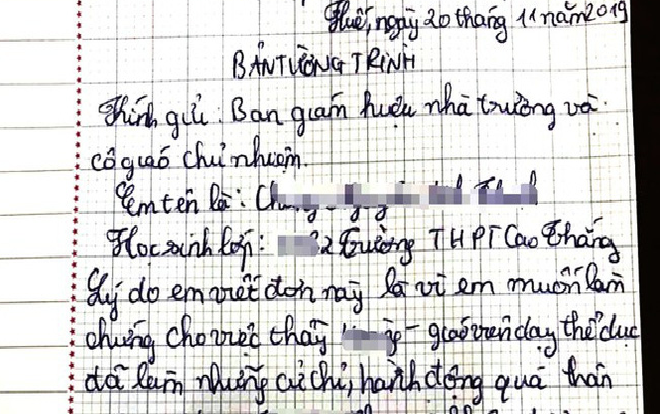 Huế, ngày 20 tháng 11 năm 2019
BẢN TƯỜNG TRÌNH
Kính gửi: Ban giám hiệu nhà trường và
cô giáo chủ nhiệm.
Em tên là: Ch
Học sinh lớp: 2 trường THPT Cao Thắng
Lý do em viết đơn này là vì em muốn làm
chứng cho việc thầy - giáo viên dạy thể dục
đã làm những cử chỉ, hành động quá thân